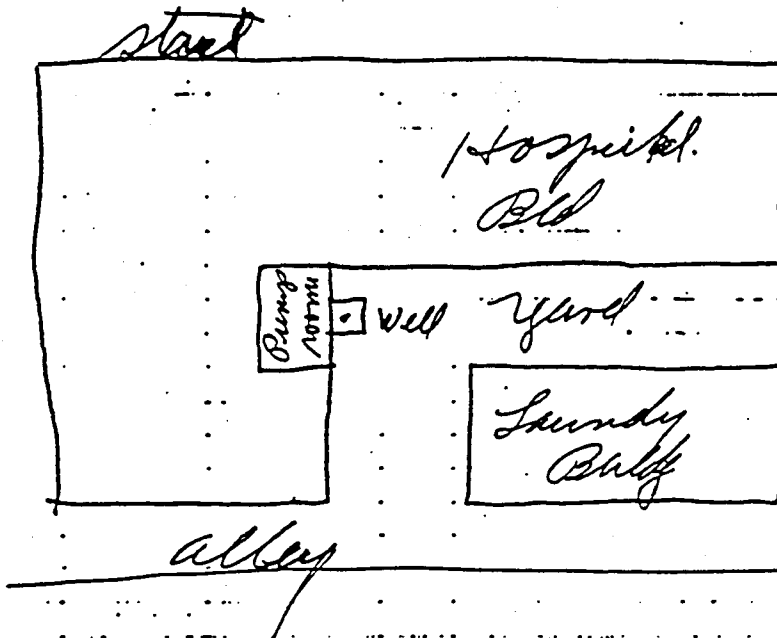 Hospital.
Bld
Pump
room
Well
Yard
Laundy
Buldg
alley